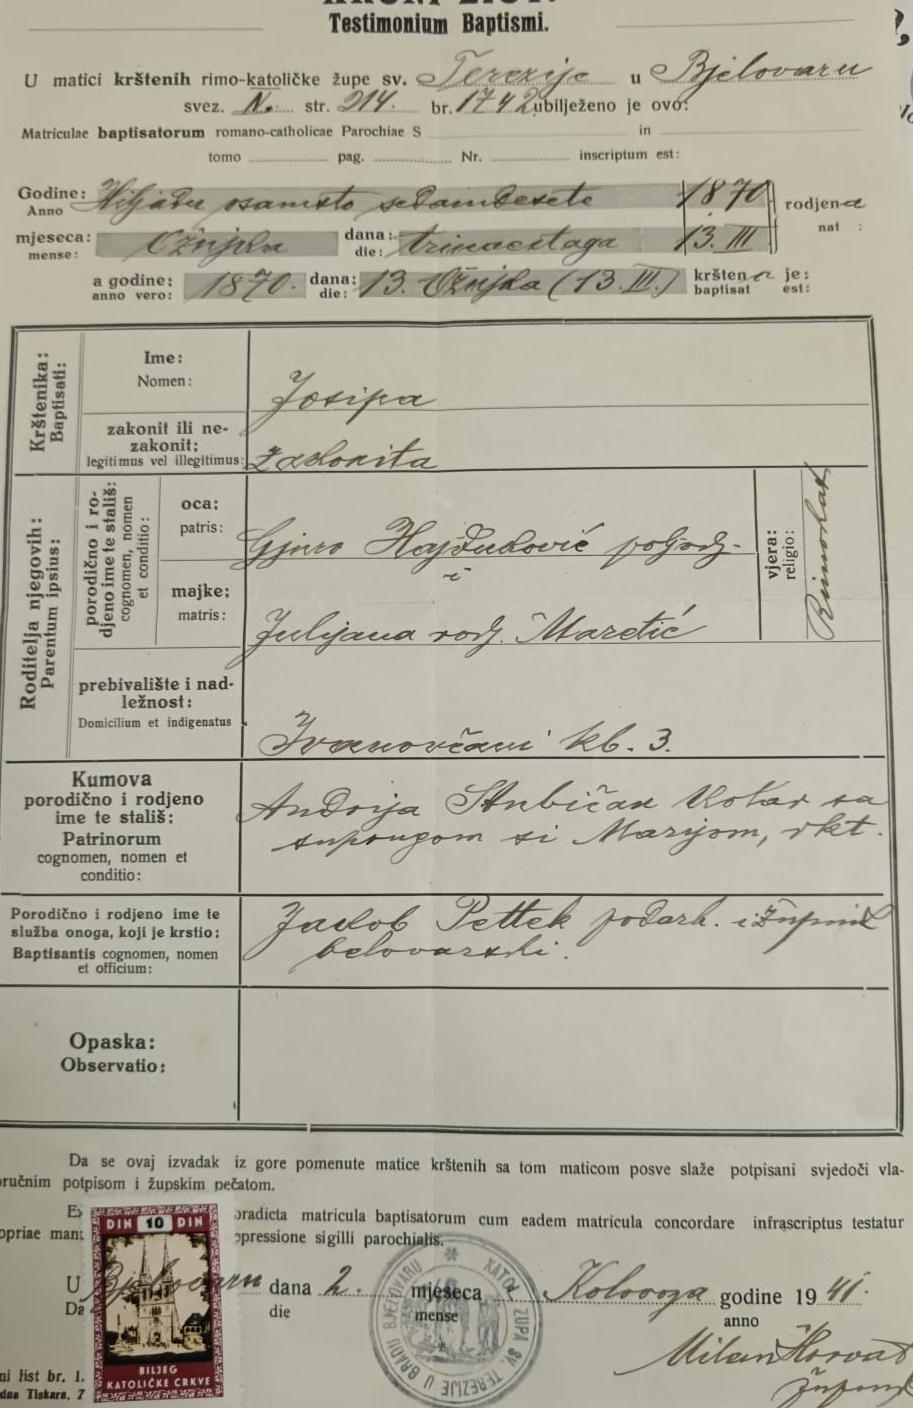 Testimonium Baptismi.
U matici krštenih rimo-katoličke župe sv. Terezije u Bjelovaru
svez. N. str. 214. br. 1742 ubilježeno je ovo:
Matriculae baptisatorum romano-catholicae Parochiae S in
tomo pag. Nr. inscriptum est:
Godine: Hiljadu osamsto sedamdesete 1870 rodjena
Anno nat :
mjeseca: Ožujka dana: trinaestaga 13. III
mense: die:
a godine: 1870. dana: 13. Ožujka (13. III.) kršten a je:
anno vero: die: baptisat est:
Krštenika:
Baptisati:
Ime:
Nomen:
Josipa
zakonit ili ne-
zakonit:
legitimus vel illegitimus:
zakonita
Roditelja njegovih:
Parentum ipsius:
porodično i ro-
djeno ime te stališ:
cognomen, nomen
et conditio:
oca:
patris:
Gjuro Hajduković poljodj.
i
majke:
matris:
Julijana rodj. Maretić
vjera:
religio:
Rimokat
prebivalište i nad-
ležnost:
Domicilium et indigenatus
Ivanovčani kb. 3.
Kumova
porodično i rodjeno
ime te stališ:
Patrinorum
cognomen, nomen et
conditio:
Andrija Stubičan kolar sa
suprugom si Marijom, rkt.
Porodično i rodjeno ime te
služba onoga, koji je krstio:
Baptisantis cognomen, nomen
et officium:
Jakob Pettek podarh. i župnik
belovarski.
Opaska:
Observatio:
Da se ovaj izvadak iz gore pomenute matice krštenih sa tom maticom posve slaže potpisani svjedoči vla-
oručnim potpisom i župskim pečatom.
oradicta matricula baptisatorum cum eadem matricula concordare infrascriptus testatur
opriae man ppressione sigilli parochialis.
DIN 10 DIN
U Bjelovaru dana 2. mjeseca Kolovoza godine 19 41.
Da die mense anno
BILJEG
KATOLIČKE CRKVE
KATOL. ŽUPA SV. TEREZIJE U GRADU BJELOVARU
Milan Horvat
župnik
ni list br. 1.
dna Tiskara, 7